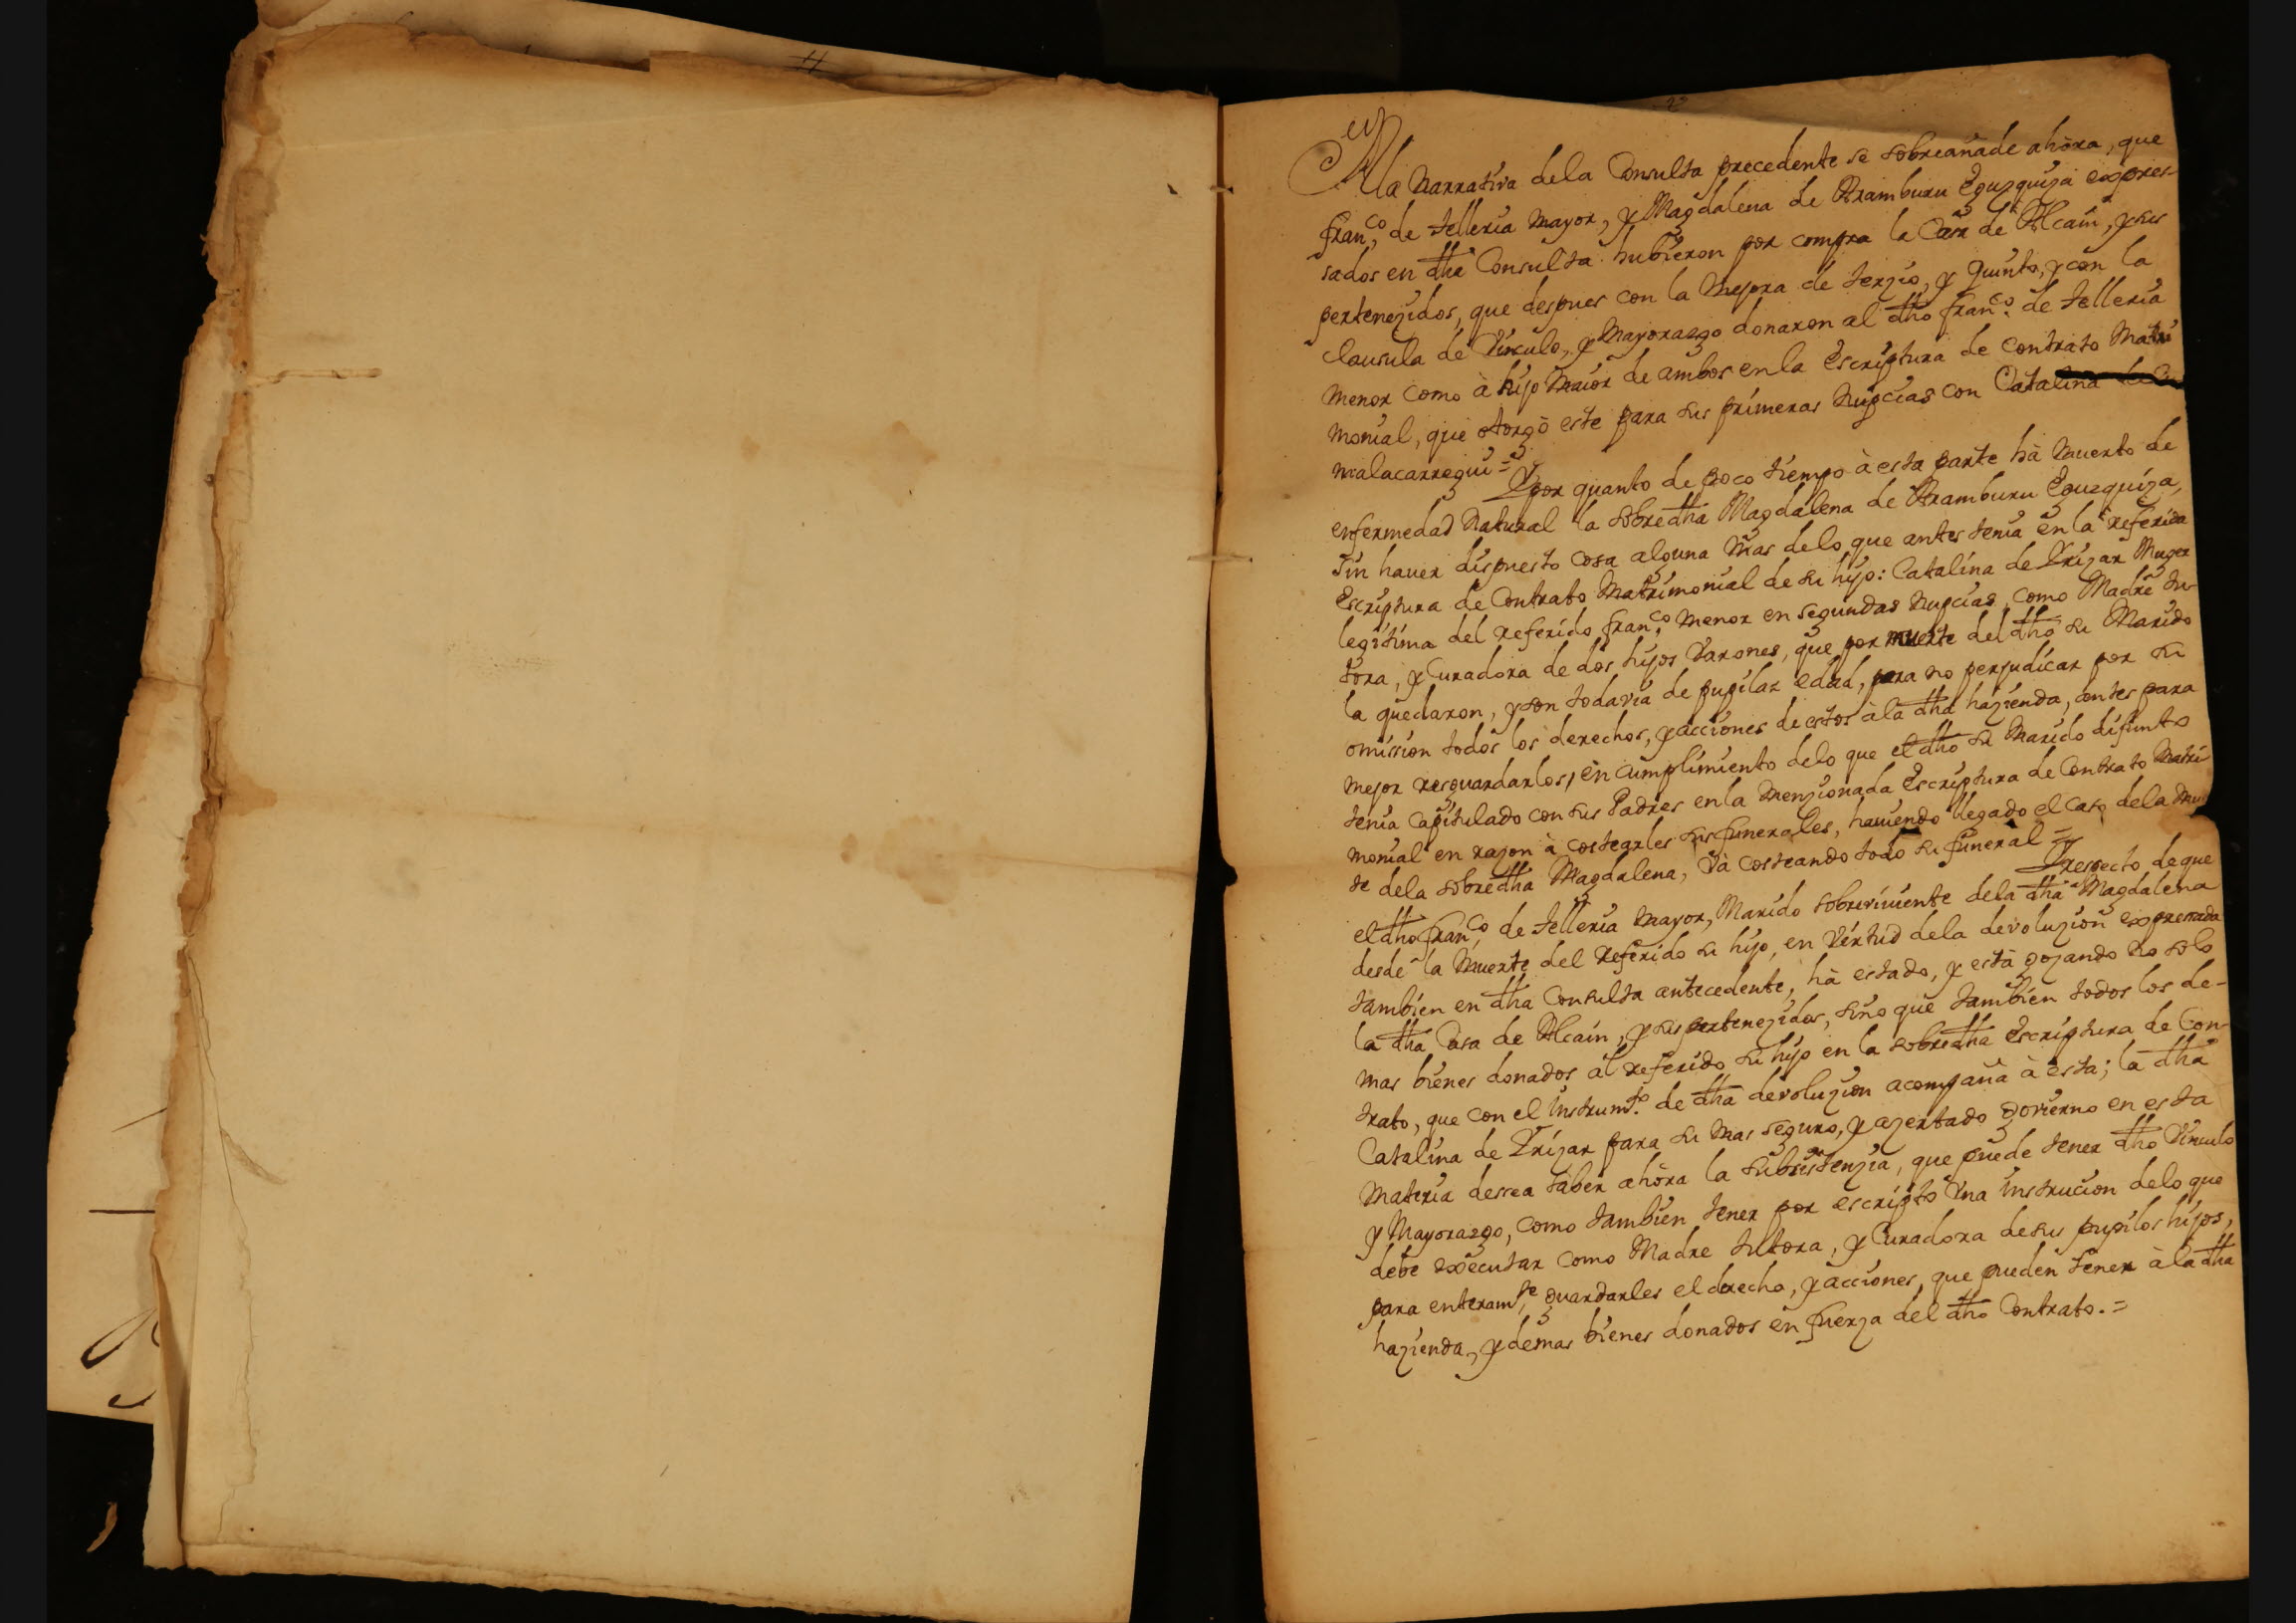 A la Narrativa dela Consulta precedente se sobreañade ahòra, que
fran.co de Telleria mayor, y Magdalena de Aramburu Eguzquiza expres-
sados en dha Consulta hubieron por compra la Casa de Alcain, y sus
pertenezidos, que despues con la Mejora de terzio, y Quinto, y con la
clausula de Vinculo, y Mayorazgo donaron al dho fran.co de Telleria
menor como à hijo Maior de ambos en la Escriptura de contrato Matri
monial, que otorgò este para sus primeras Nupcias con Catalina
malacarregui = Y por quanto de poco tiempo à esta parte hà Muerto de
enfermedad Natural la sobredha Magdalena de Aramburu Eguzquiza,
Sin hauer dispuesto cosa alguna Mas delo que antes tenia en la referida
Escriptura de Contrato Matrimonial de su hijo: Catalina de Yrizar Muger
legitima del referido fran.co menor en segundas Nupcias, como Madre tu-
tora, y Curadora de dos hijos Varones, que por muerte del dho su Marido
la quedaron, y son todavia de pupilar edad, para no perjudicar por su
omission todos los derechos, y acciones de estos à la dha hazienda, antes para
mejor resguardarlos, en cumplimiento delo que el dho su Marido difunto
tenia Capitulado con sus Padres en la Menzionada Escriptura de Contrato Matri-
monial en razon à costearles sus funerales, hauiendo llegado el caso dela Mu
te dela sobredha Magdalena, Và costeando todo su funeral = Y respecto de que
el dho fran.co de Telleria Mayor, Marido sobreviviente dela dha Magdalena
desde la Muerte del Referido su hijo, en Virtud dela devoluzion expressada
tambien en dha Consulta antecedente, hà estado, y està gozando no solo
la dha Casa de Alcain, y sus pertenezidos, sino que tambien todos los de-
mas bienes donados al referido su hijo en la sobredha Escriptura de Con-
trato, que con el instrum.to de dha devoluzion acompaña à esta; la dha
Catalina de Yrizar para su mas seguro, y azertado govierno en esta
Materia dessea saber ahòra la subsistenzia, que puede tener dho Vinculo
y Mayorazgo, como tambien tener por escripto Vna instrucion delo que
debe executar como Madre tutora, y Curadora de sus pupilos hijos,
para enteram.te guardarles el derecho, y acciones, que pueden tener à la dha
hazienda, y demas bienes donados en fuerza del dho Contrato. =